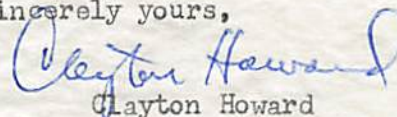 incerely yours,
Clayton Howard
Clayton Howard